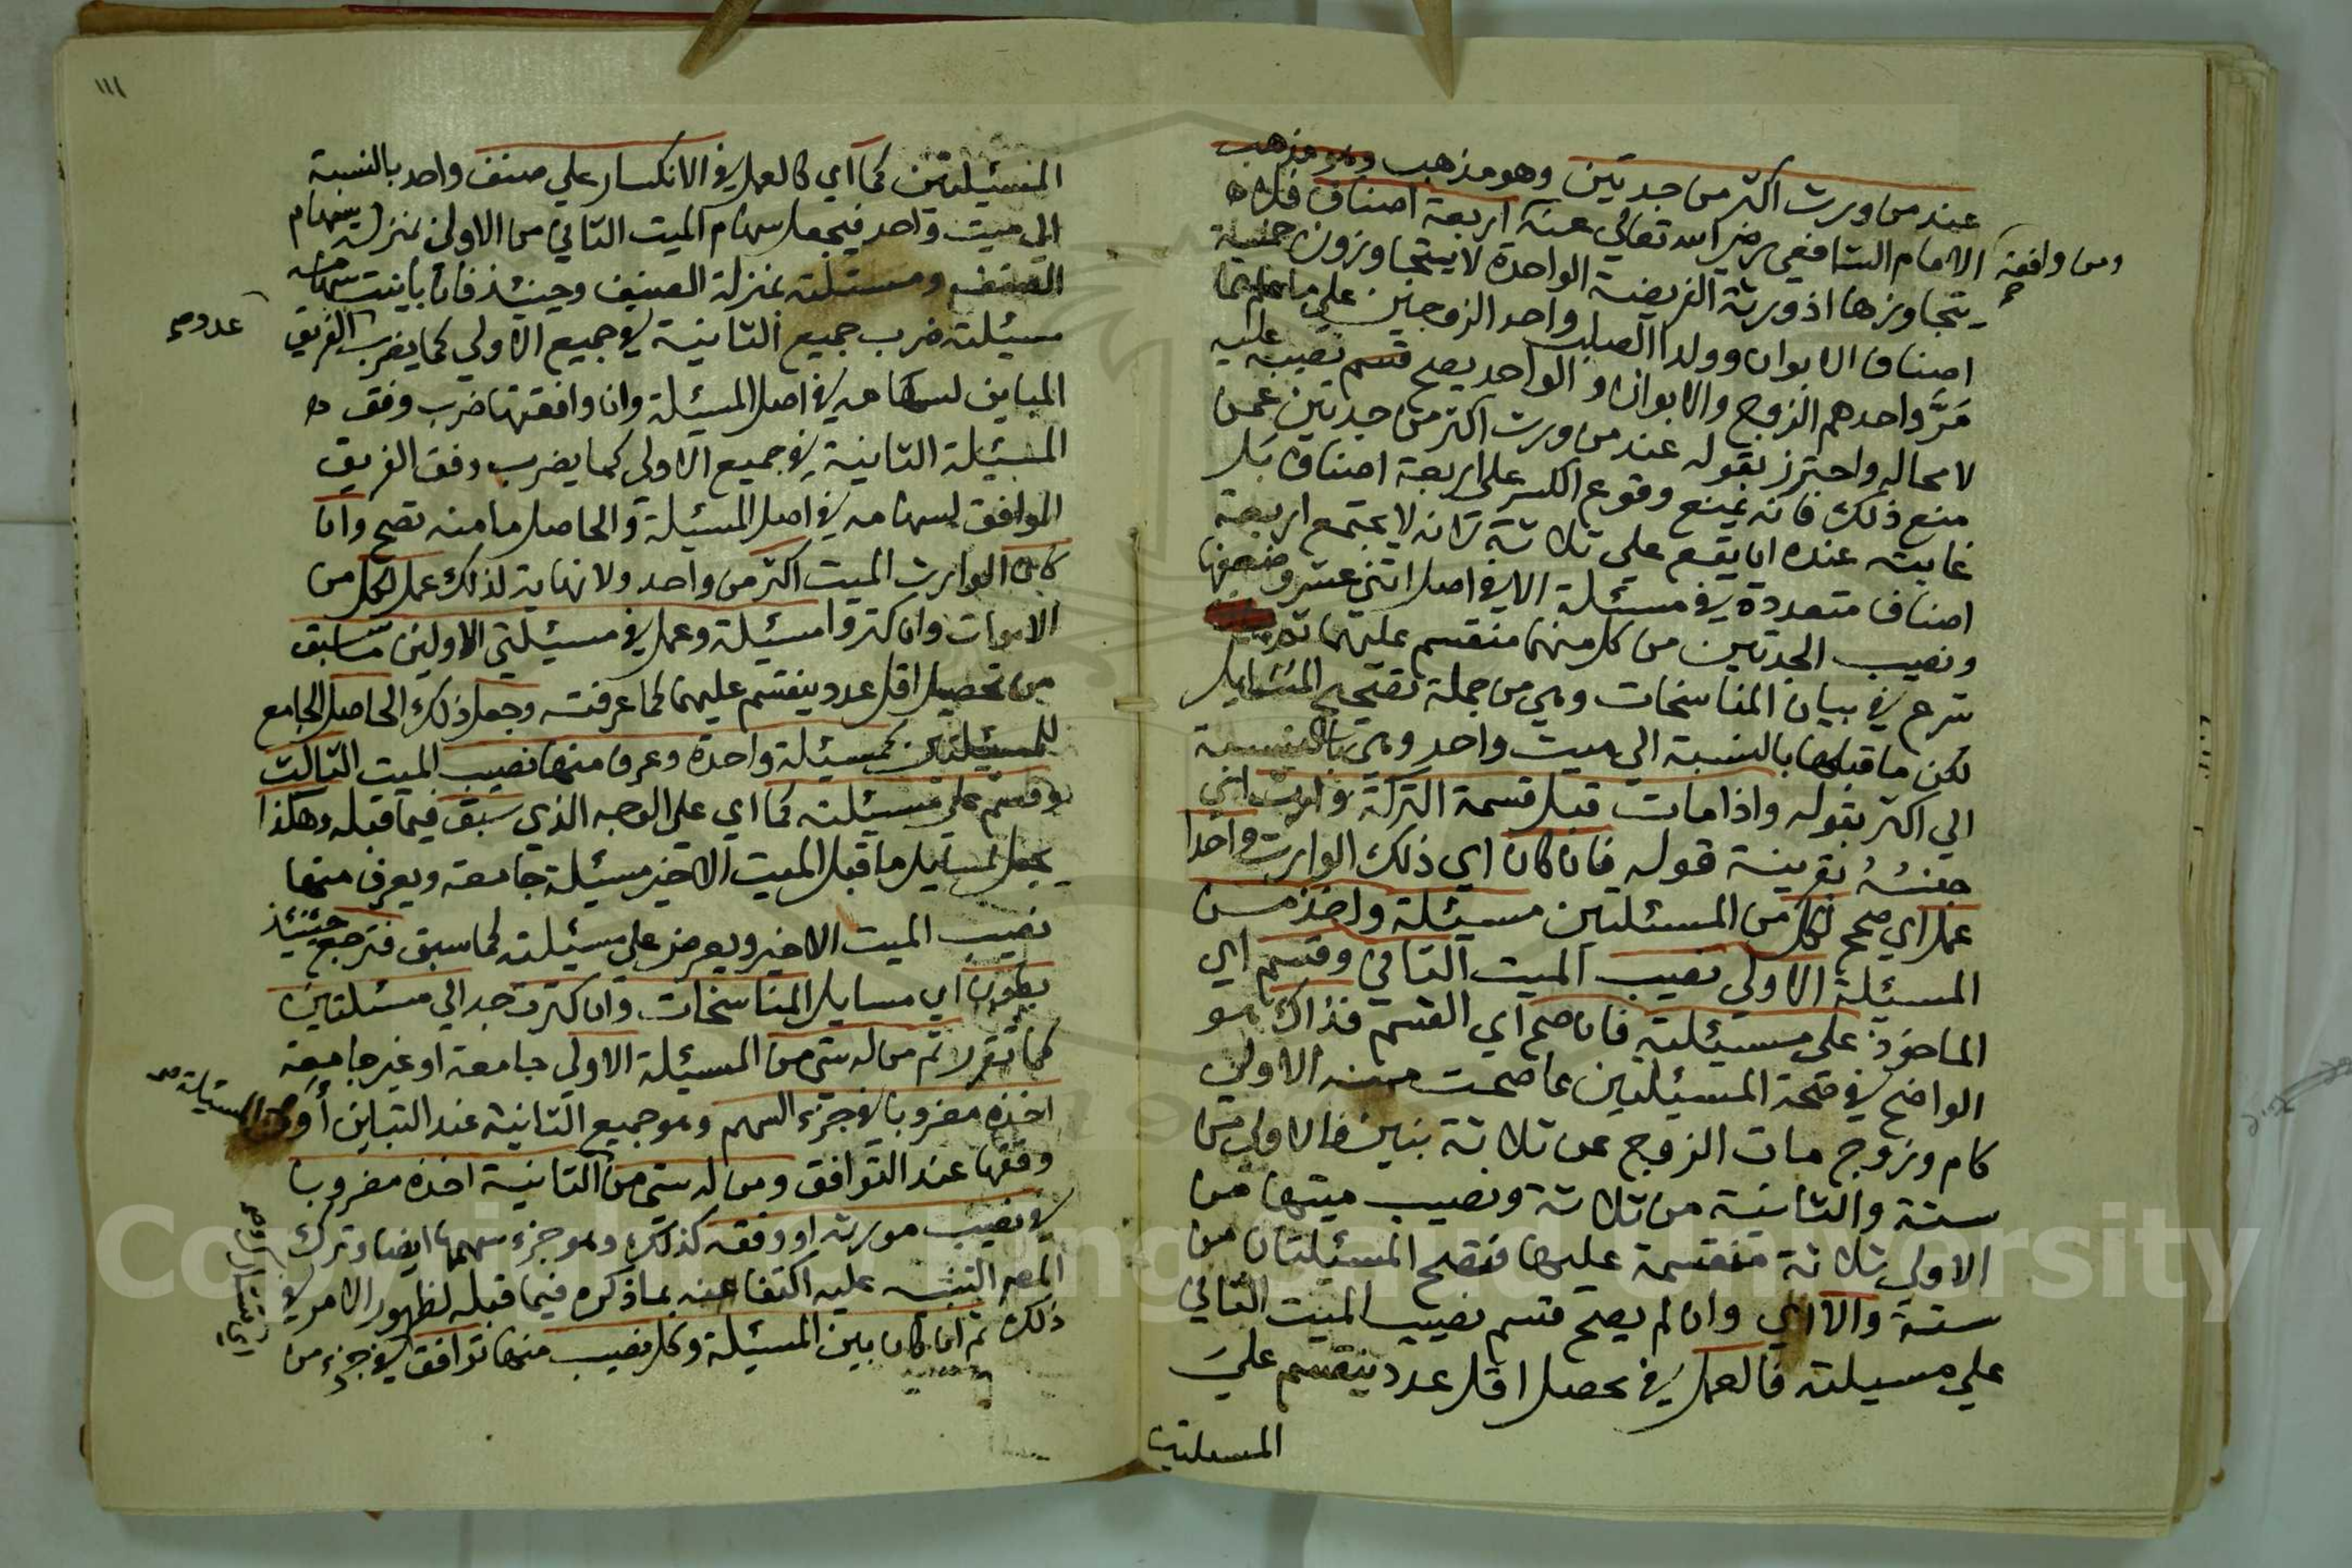 عند من ورث اكثر من جدتين وهو مذهب ومو مذهب
الامام الشافعي رضي الله تعالي عنه اربعة اصناف فلا
ومن وافقه
يتجاوزها اذ ورثة الفريضة الواحدة لا يتجاوزون خمسة
اصناف الابوان وولدا الصلب واحد الزوجين علي ما
مر واحدهم الزوج والابوان والواحد يصح قسم نصيبه عليه
لا محاله واحترز بقوله عند من ورث اكثر من جدتين عمن
منع ذلك فانه يمنع وقوع الكسر علي اربعة اصناف بل
غايته عنده ان يقع علي ثلاثة لانه لا يجتمع اربعة
اصناف متعددة في مسئلة الا في اصل اثني عشر وضعفها
ونصيب الجدتين من كل منهما منقسم عليهما ثم
شرع في بيان المناسخات وهي من جملة تصحيح المسايل
لكن ما قبلها بالنسبة الي ميت واحد وهي بالنسبة
الي اكثر بقوله واذا مات قبل قسمة التركة وارث اي
جنسه بقرينة قوله فان كان اي ذلك الوارث واحدا
عمل اي صحح لكل من المسئلتين مسئلة واخذ من
المسئلة الاولي نصيب الميت الثاني وقسم اي
الماخوذ علي مسئلته فان صح اي القسم فذاك هو
الواضح في صحة المسئلتين مما صحت منه الاولي
كام وزوج مات الزوج عن ثلاثة بنين فالاولي من
ستة والثانية من ثلاثة ونصيب ميتها من
الاولي ثلاثة منقسمة عليها فتصح المسئلتان من
ستة والا اي وان لم يصح قسم نصيب الميت الثاني
علي مسيلته فالعمل في تحصل اقل عدد ينقسم علي
المسيلتين
١١١
المسئلتين كما اي كالعمل في الانكسار علي صنف واحد بالنسبة
الي ميت واحد فيجعل سهام الميت الثاني من الاولي بمنزلة سهام
الصنف ومسئلته بمنزلة الصنف وحينئذ فان باينت سهامه
مسيئلته ضرب جميع الثانية في جميع الاولي كما يضرب الفريق
عدد صح
المباين لسهامه في اصل المسيئلة وان وافقتها ضرب وفق
المسئيلة الثانية في جميع الاولي كما يضرب وفق الفريق
الموافق لسهامه في اصل المسئيلة والحاصل ما منه تصح وان
كان الوارث الميت اكثر من واحد ولا نهاية لذلك عمل لكل من
الاموات وان كثروا مسئيلة وعمل في مسيئلتي الاولين ما سبق
من تحصيل اقل عدد ينقسم عليهما كما عرفت وجعل ذلك الحاصل الجامع
للمسئيلتين كمسيئلة واحدة وعرف منها نصيب الميت الثالث
وقسم علي مسيئلته كما اي علي الوجه الذي سبق فيما قبله وهكذا
يجعل مسايل ما قبل الميت الاخير مسيئلة جامعة ويعرف منها
نصيب الميت الاخير ويعرض علي مسيئلته كما سبق فترجع حينئذ
بطون اي مسايل المناسخات وان كثرت جدا الي مسئلتين
كما تقرر ثم من له شي من المسيئلة الاولي جامعة او غير جامعة
اخذه مضروبا في جزء السهم وهو جميع الثانية عند التباين او
المسئيلة صح
وفقها عند التوافق ومن له شي من الثانية اخذه مضروبا
في نصيب مورثه او وفقه كذلك وهو جزء سهمها ايضا وترك
المصر التنبيه عليه اكتفا عنه بما ذكره فيما قبله لظهور الامر في
ذلك ثم ان كان بين المسيئلة وكل نصيب منها توافق في جزء من